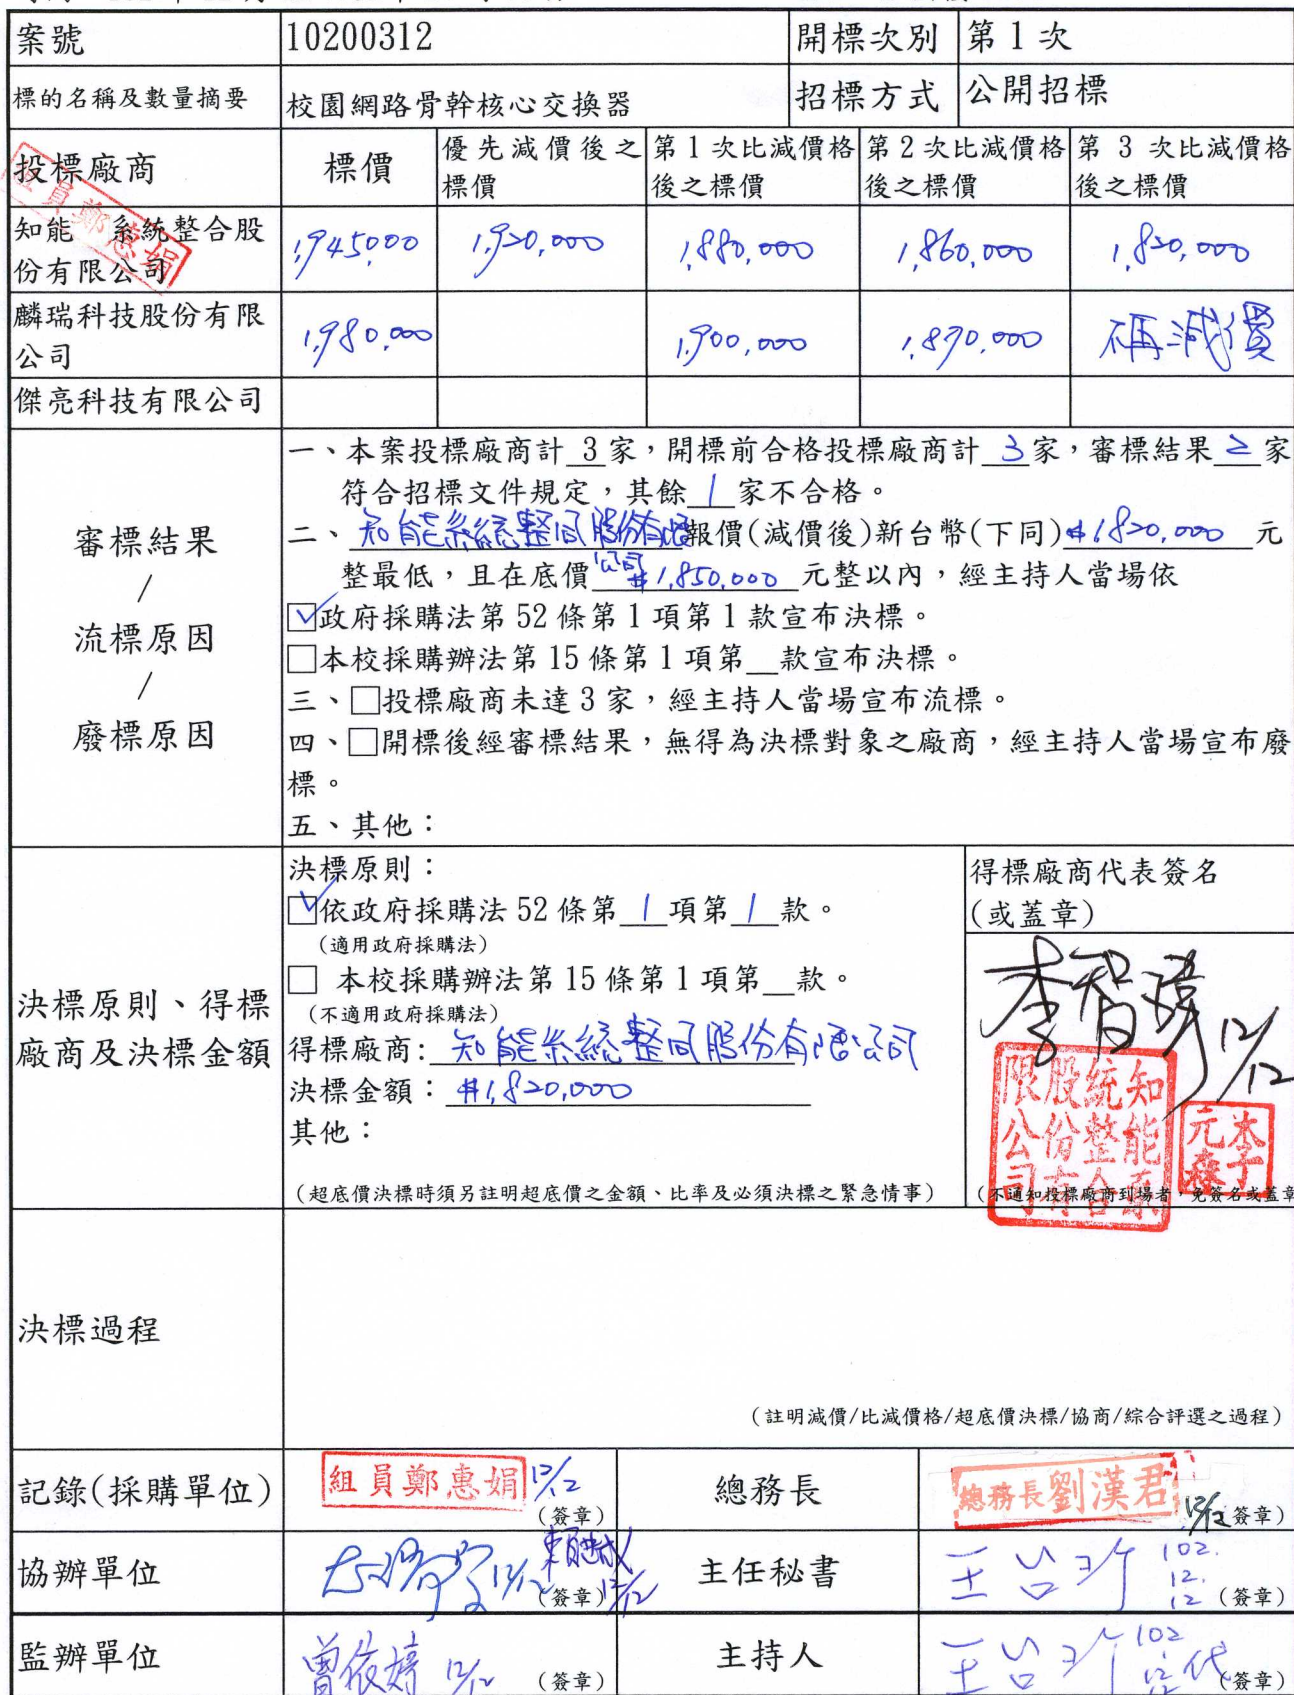 案號 10200312 開標次別 第1次
標的名稱及數量摘要 校園網路骨幹核心交換器 招標方式 公開招標
投標廠商 標價 優先減價後之標價 第1次比減價格後之標價 第2次比減價格後之標價 第3次比減價格後之標價
組員鄭惠娟
知能 系統整合股份有限公司 1,945,000 1,920,000 1,880,000 1,860,000 1,820,000
麟瑞科技股份有限公司 1,980,000 1,900,000 1,870,000 不再減價
傑亮科技有限公司
審標結果
/
流標原因
/
廢標原因
一、本案投標廠商計 3 家,開標前合格投標廠商計 3 家,審標結果 2 家
符合招標文件規定,其餘 1 家不合格。
二、知能系統整合股份有限公司報價(減價後)新台幣(下同)$1,820,000 元
整最低,且在底價 $1,850,000 元整以內,經主持人當場依
☑政府採購法第52條第1項第1款宣布決標。
□本校採購辦法第15條第1項第__款宣布決標。
三、□投標廠商未達3家,經主持人當場宣布流標。
四、□開標後經審標結果,無得為決標對象之廠商,經主持人當場宣布廢
標。
五、其他:
決標原則、得標
廠商及決標金額
決標原則:
☑依政府採購法52條第 1 項第 1 款。
(適用政府採購法)
□ 本校採購辦法第15條第1項第__款。
(不適用政府採購法)
得標廠商:知能系統整合股份有限公司
決標金額:$1,820,000
其他:
(超底價決標時須另註明超底價之金額、比率及必須決標之緊急情事)
得標廠商代表簽名
(或蓋章)
李智瑋 12/12
知能系統整合股份有限公司
李元森
(不通知投標廠商到場者,免簽名或蓋章
決標過程
(註明減價/比減價格/超底價決標/協商/綜合評選之過程)
記錄(採購單位) 組員鄭惠娟 12/12 (簽章) 總務長 總務長劉漢君 12/12 簽章)
協辦單位 12/12 12/12 (簽章) 主任秘書 102.12.12 (簽章)
監辦單位 曾依婷 12/12 (簽章) 主持人 102.12.12 代 (簽章)